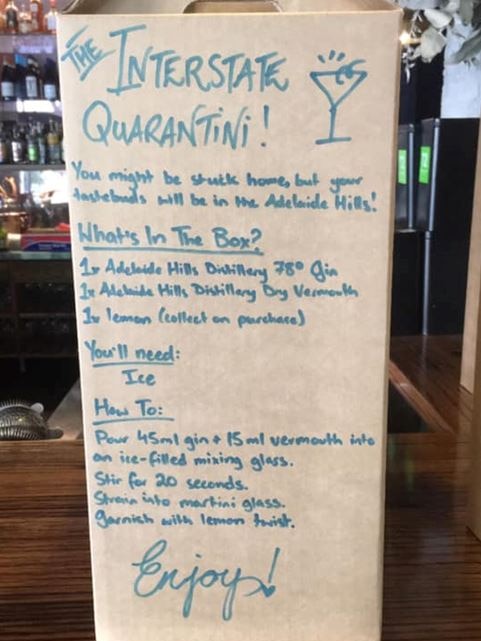 THE INTERSTATE
QUARANTINI!
You might be stuck home, but your
tastebuds will be in the Adelaide Hills!
What's In The Box?
1x Adelaide Hills Distillery 78° Gin
1x Adelaide Hills Distillery Dry Vermouth
1x lemon (collect on purchase)
You'll need:
Ice
How To:
Pour 45ml gin + 15ml vermouth into
an ice-filled mixing glass.
Stir for 20 seconds.
Strain into martini glass.
Garnish with lemon twist.
Enjoy!